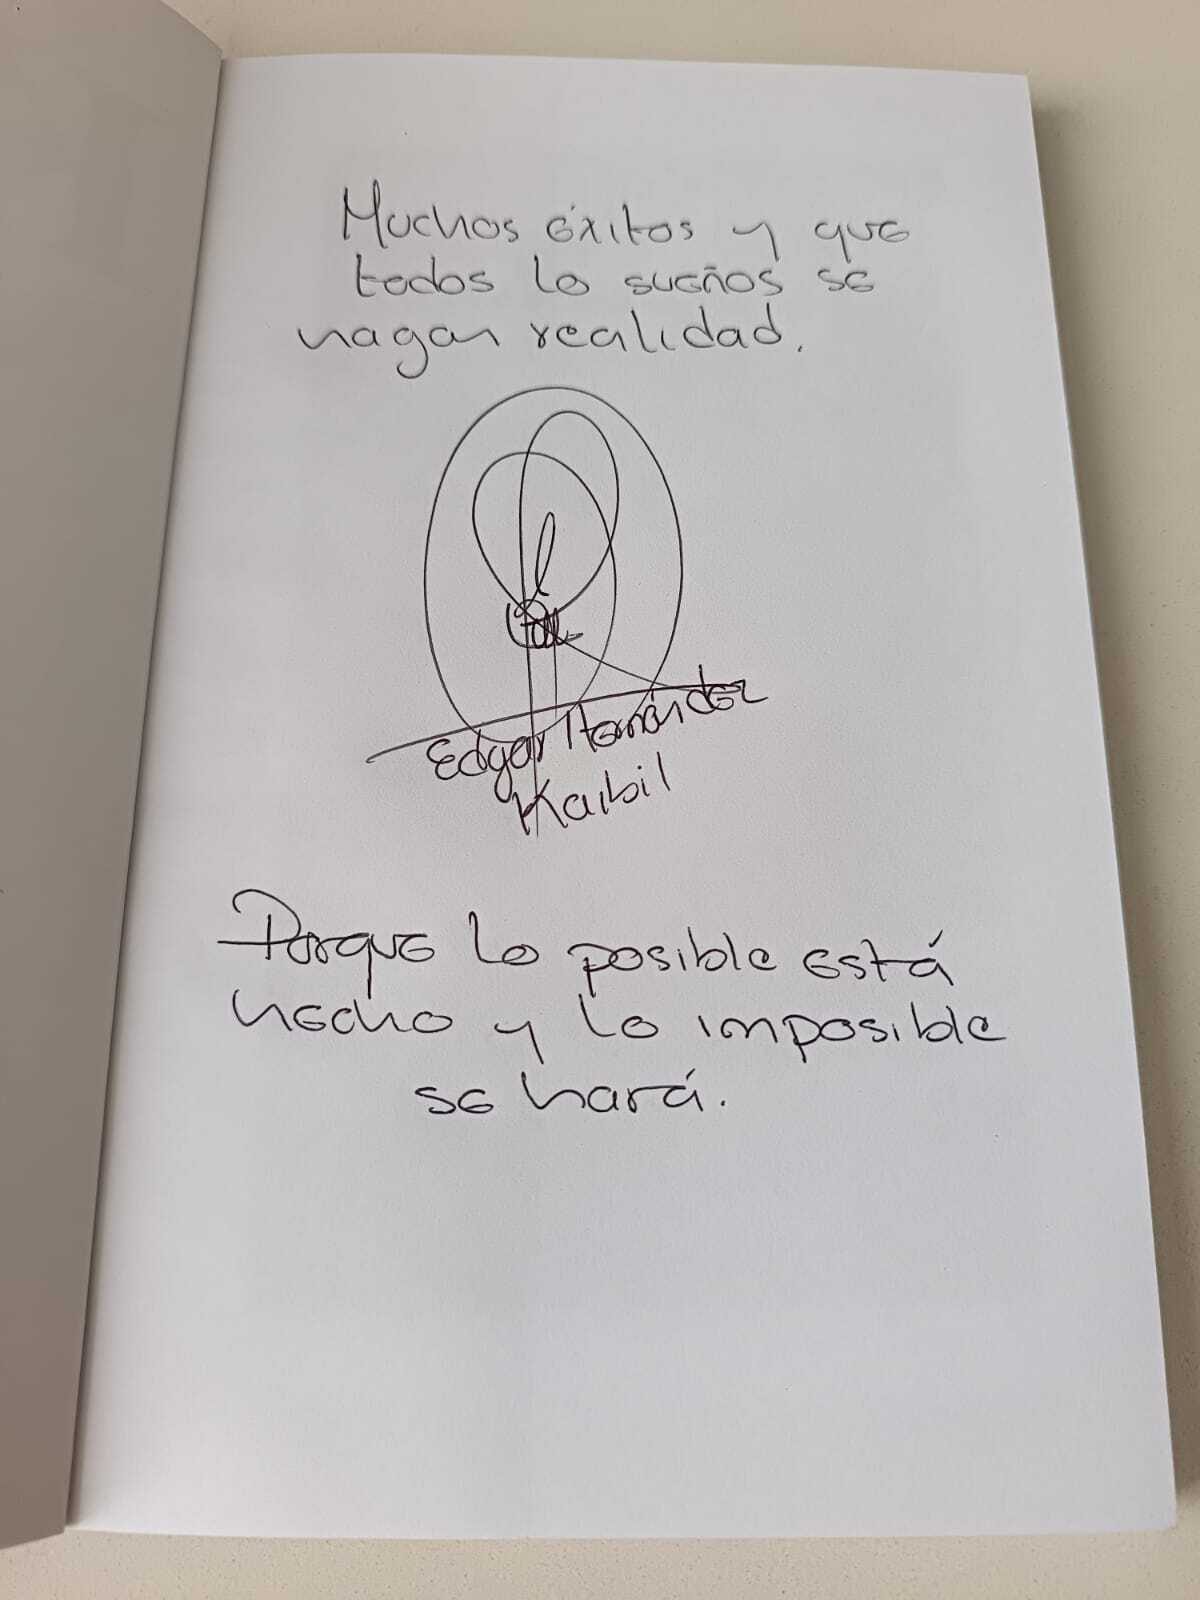 Muchos éxitos y que
todos lo sueños se
hagan realidad.
Edgar Hernández
Kaibil
Porque lo posible está
hecho y lo imposible
se hará.